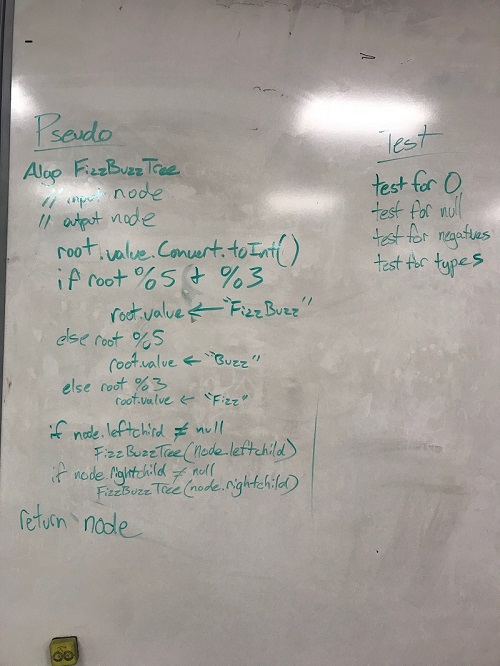 Pseudo
Algo FizzBuzzTree
// input node
// output node
root.value.Convert.toInt()
if root %5 & %3
root.value ← "FizzBuzz"
else root %5
root.value ← "Buzz"
else root %3
root.value ← "Fizz"
if node.leftchild ≠ null
FizzBuzzTree(Node.leftchild)
if node.rightchild ≠ null
FizzBuzzTree(node.rightchild)
return node
Test
test for 0
test for null
test for negatives
test for types